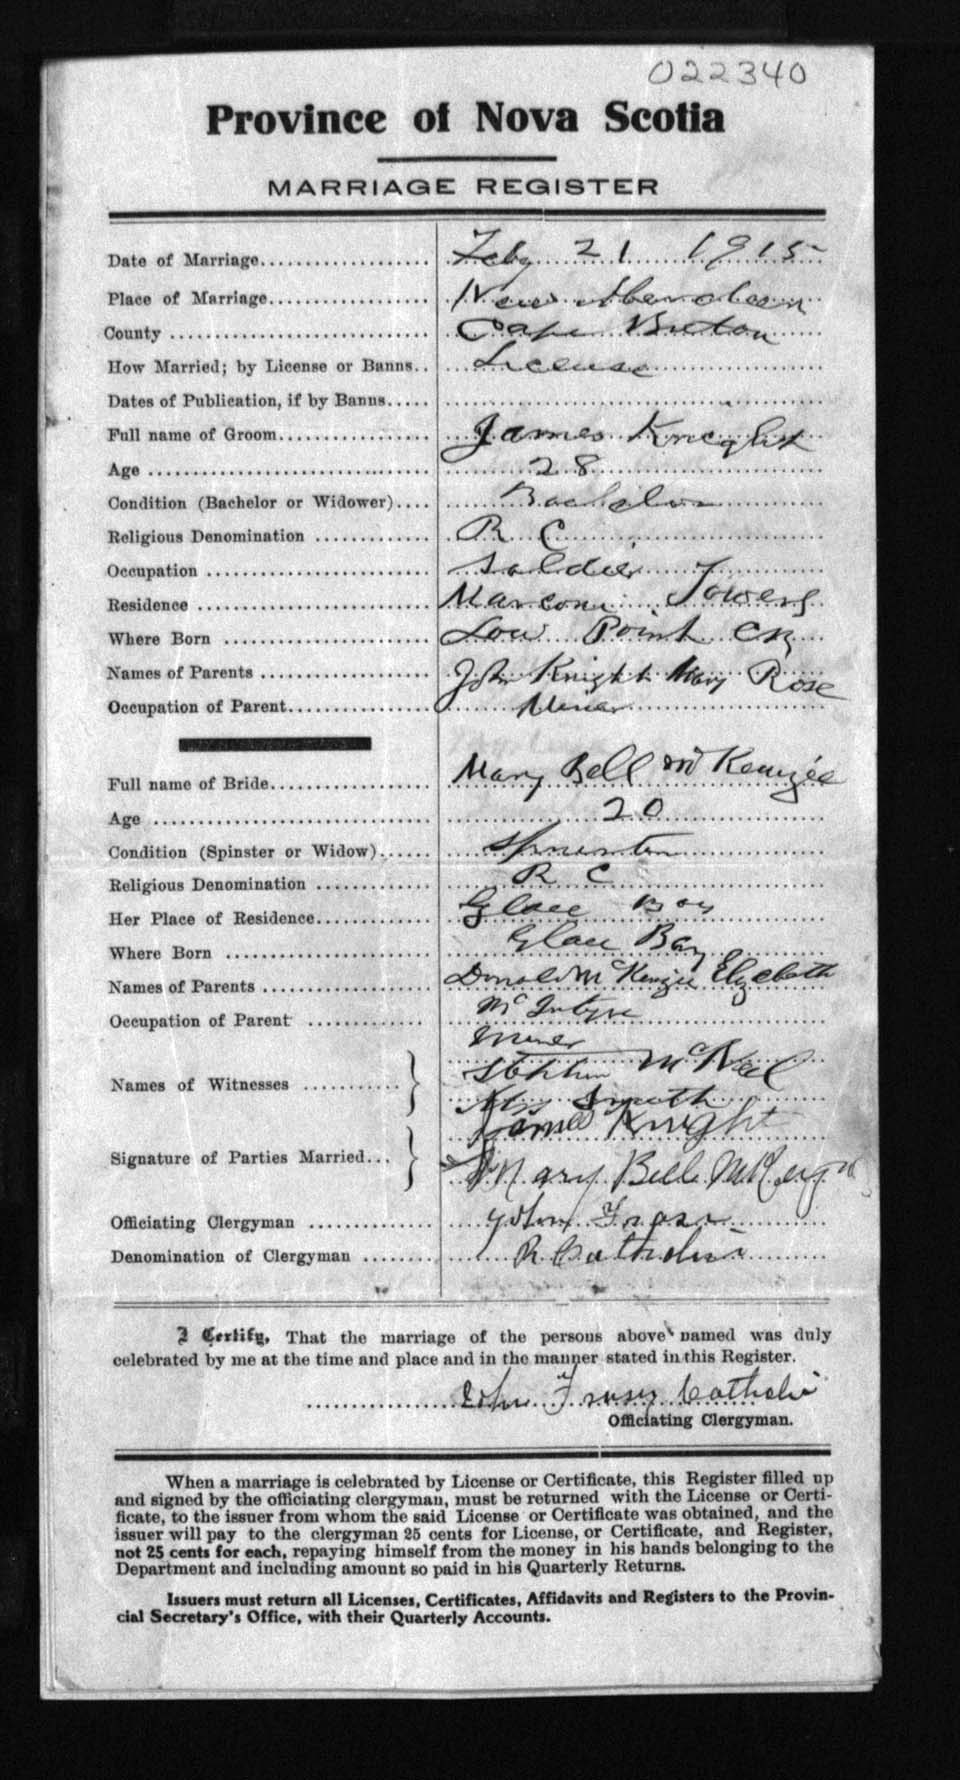 022340
Province of Nova Scotia
MARRIAGE REGISTER
Date of Marriage Feby 21 1915
Place of Marriage New Aberdeen
County Cape Breton
How Married; by License or Banns License
Dates of Publication, if by Banns
Full name of Groom James Knight
Age 28
Condition (Bachelor or Widower) Bachelor
Religious Denomination R C
Occupation Soldier
Residence Marconi Towers
Where Born Low Point CB
Names of Parents John Knight Mary Rose
Occupation of Parent Miner
Full name of Bride Mary Bell McKenzie
Age 20
Condition (Spinster or Widow) Spinster
Religious Denomination R C
Her Place of Residence Glace Bay
Where Born Glace Bay
Names of Parents Donald McKenzie Elizebath
Occupation of Parent McIntyre
Miner
Names of Witnesses Stephen McNeil
Smith
Signature of Parties Married James Knight
Mary Bell
Officiating Clergyman John Fraser
Denomination of Clergyman R. Catholic
I Certify, That the marriage of the persons above named was duly
celebrated by me at the time and place and in the manner stated in this Register.
John Fraser Catholic
Officiating Clergyman.
When a marriage is celebrated by License or Certificate, this Register filled up
and signed by the officiating clergyman, must be returned with the License or Certi-
ficate, to the issuer from whom the said License or Certificate was obtained, and the
issuer will pay to the clergyman 25 cents for License, or Certificate, and Register,
not 25 cents for each, repaying himself from the money in his hands belonging to the
Department and including amount so paid in his Quarterly Returns.
Issuers must return all Licenses, Certificates, Affidavits and Registers to the Provin-
cial Secretary's Office, with their Quarterly Accounts.